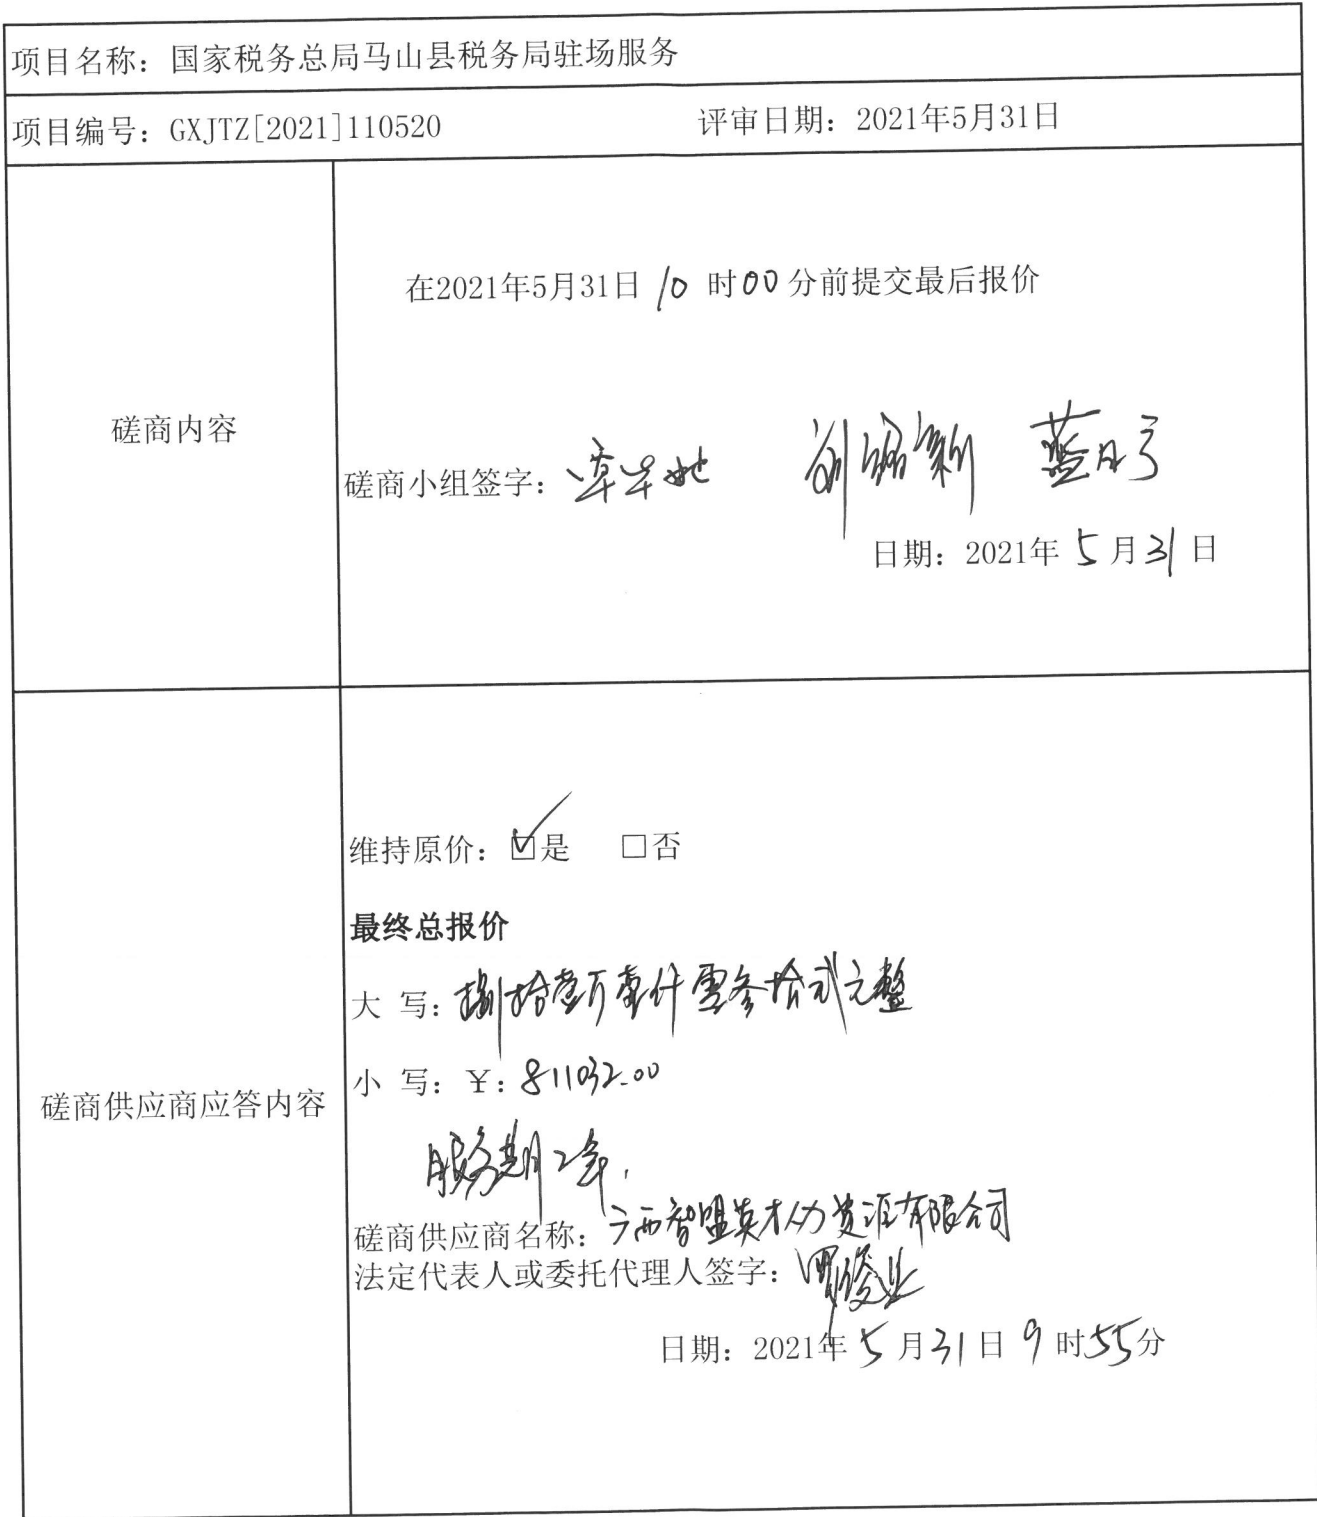 项目名称：国家税务总局马山县税务局驻场服务
项目编号：GXJTZ[2021]110520 评审日期：2021年5月31日
在2021年5月31日 10 时00分前提交最后报价
磋商内容
磋商小组签字：
日期：2021年 5 月 31 日
维持原价：☑是 □否
最终总报价
大 写：捌拾壹万壹仟零叁拾贰元整
小 写：￥：811032.00
磋商供应商应答内容
服务期2年，
磋商供应商名称：广西智盟英才人力资源有限公司
法定代表人或委托代理人签字：
日期：2021年 5 月 31 日 9 时 55 分